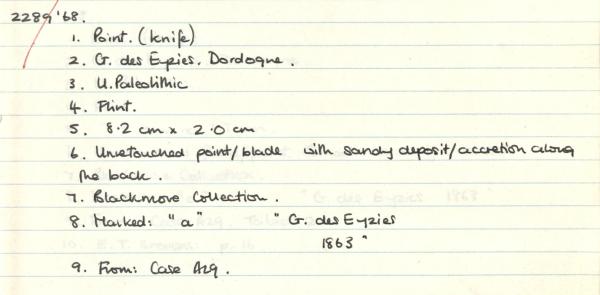 2289 '68.
1. Point. (knife)
2. G. des Eyzies. Dordogne.
3. U. Paleolithic
4. Flint.
5. 8.2 cm x 2.0 cm
6. Unretouched point/blade with sandy deposit/accretion along
the back.
7. Blackmore Collection.
8. Marked: "a" "G. des Eyzies
1863"
9. From: Case A29.